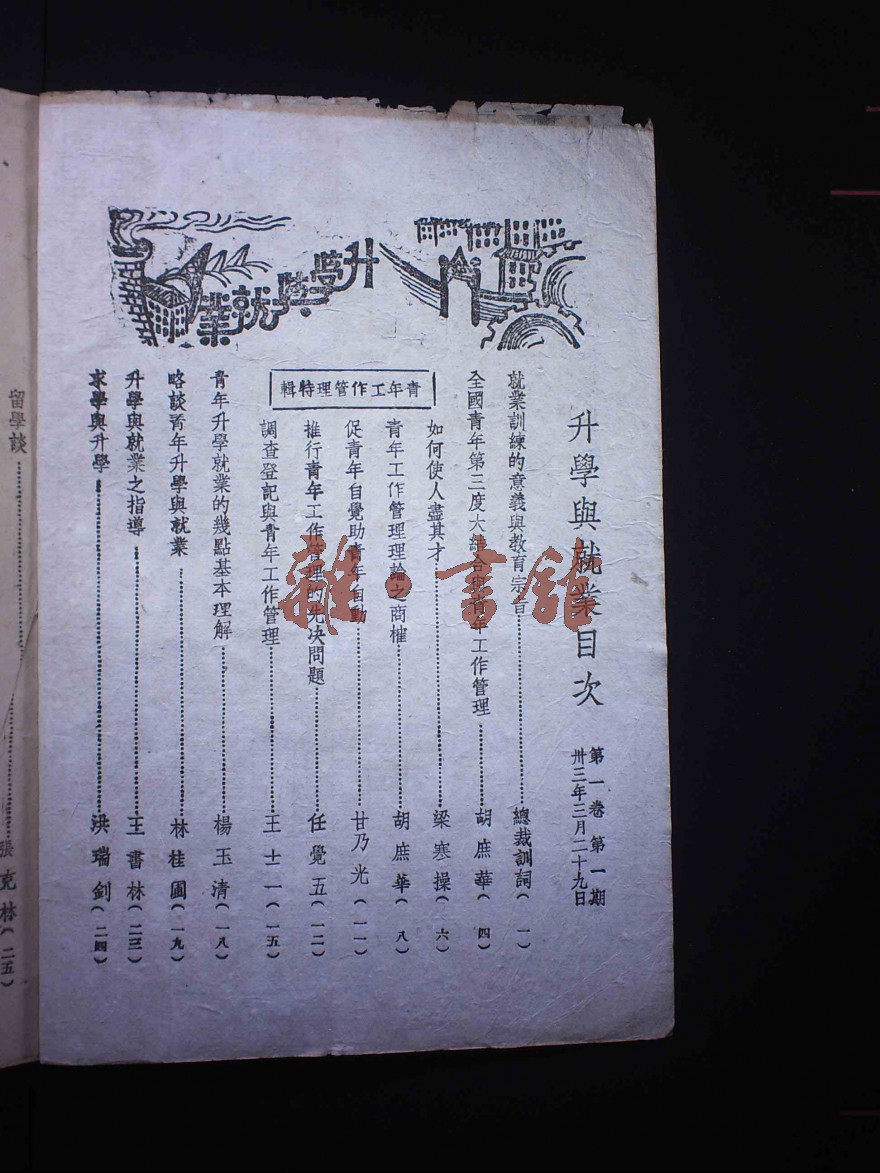 升學與就業
升學與就業目次
第一卷 第一期
卅三年三月二十九日
就業訓練的意義與教育宗旨……總裁訓詞(一)
全國青年第三度大結合與青年工作管理……胡庶華(四)
青年工作管理特輯
如何使人盡其才……梁寒操(六)
青年工作管理理論之商榷……胡庶華(八)
促青年自覺助青年自動……甘乃光(一一)
推行青年工作管理的先決問題……任覺五(一二)
調查登記與青年工作管理……王士一(一五)
青年升學就業的幾點基本理解……楊玉清(一八)
略談青年升學與就業……林桂圃(一九)
升學與就業之指導……王書林(二三)
求學與升學……洪瑞釗(二四)
留學談……張克林(二五)
雜·書館